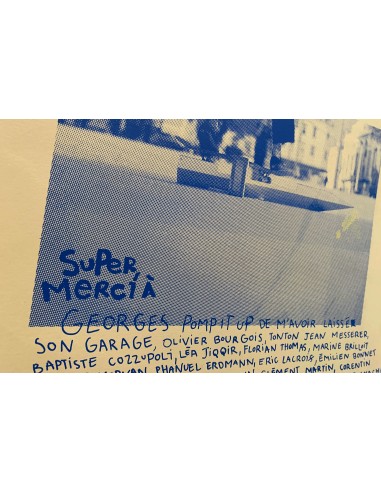 SUPER,
MERCI À
GEORGES POMPITUP DE M'AVOIR LAISSÉ
SON GARAGE, OLIVIER BOURGOIS, TONTON JEAN MESSERER,
BAPTISTE COZZUPOLI, LÉA JIQQIR, FLORIAN THOMAS, MARINE BRILLOIT
PHANUEL ERDMANN, ERIC LACROIX, ÉMILIEN BONNET
CLÉMENT MARTIN, CORENTIN